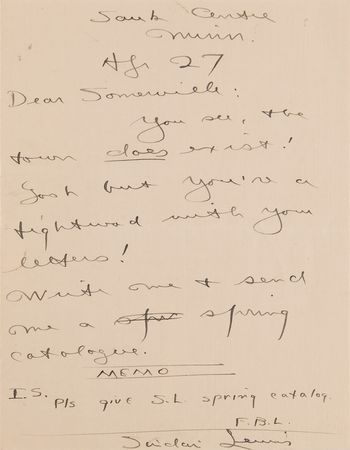 Sauk Centre
Minn.
Apr 27
Dear Somerville:
You see, the
town does exist!
Gosh but you're a
tightwad with your
letters!
Write me & send
me a spr spring
catalogue.
MEMO
I.S. Pls give S.L. spring catalog.
F.B.L.
Sinclair Lewis